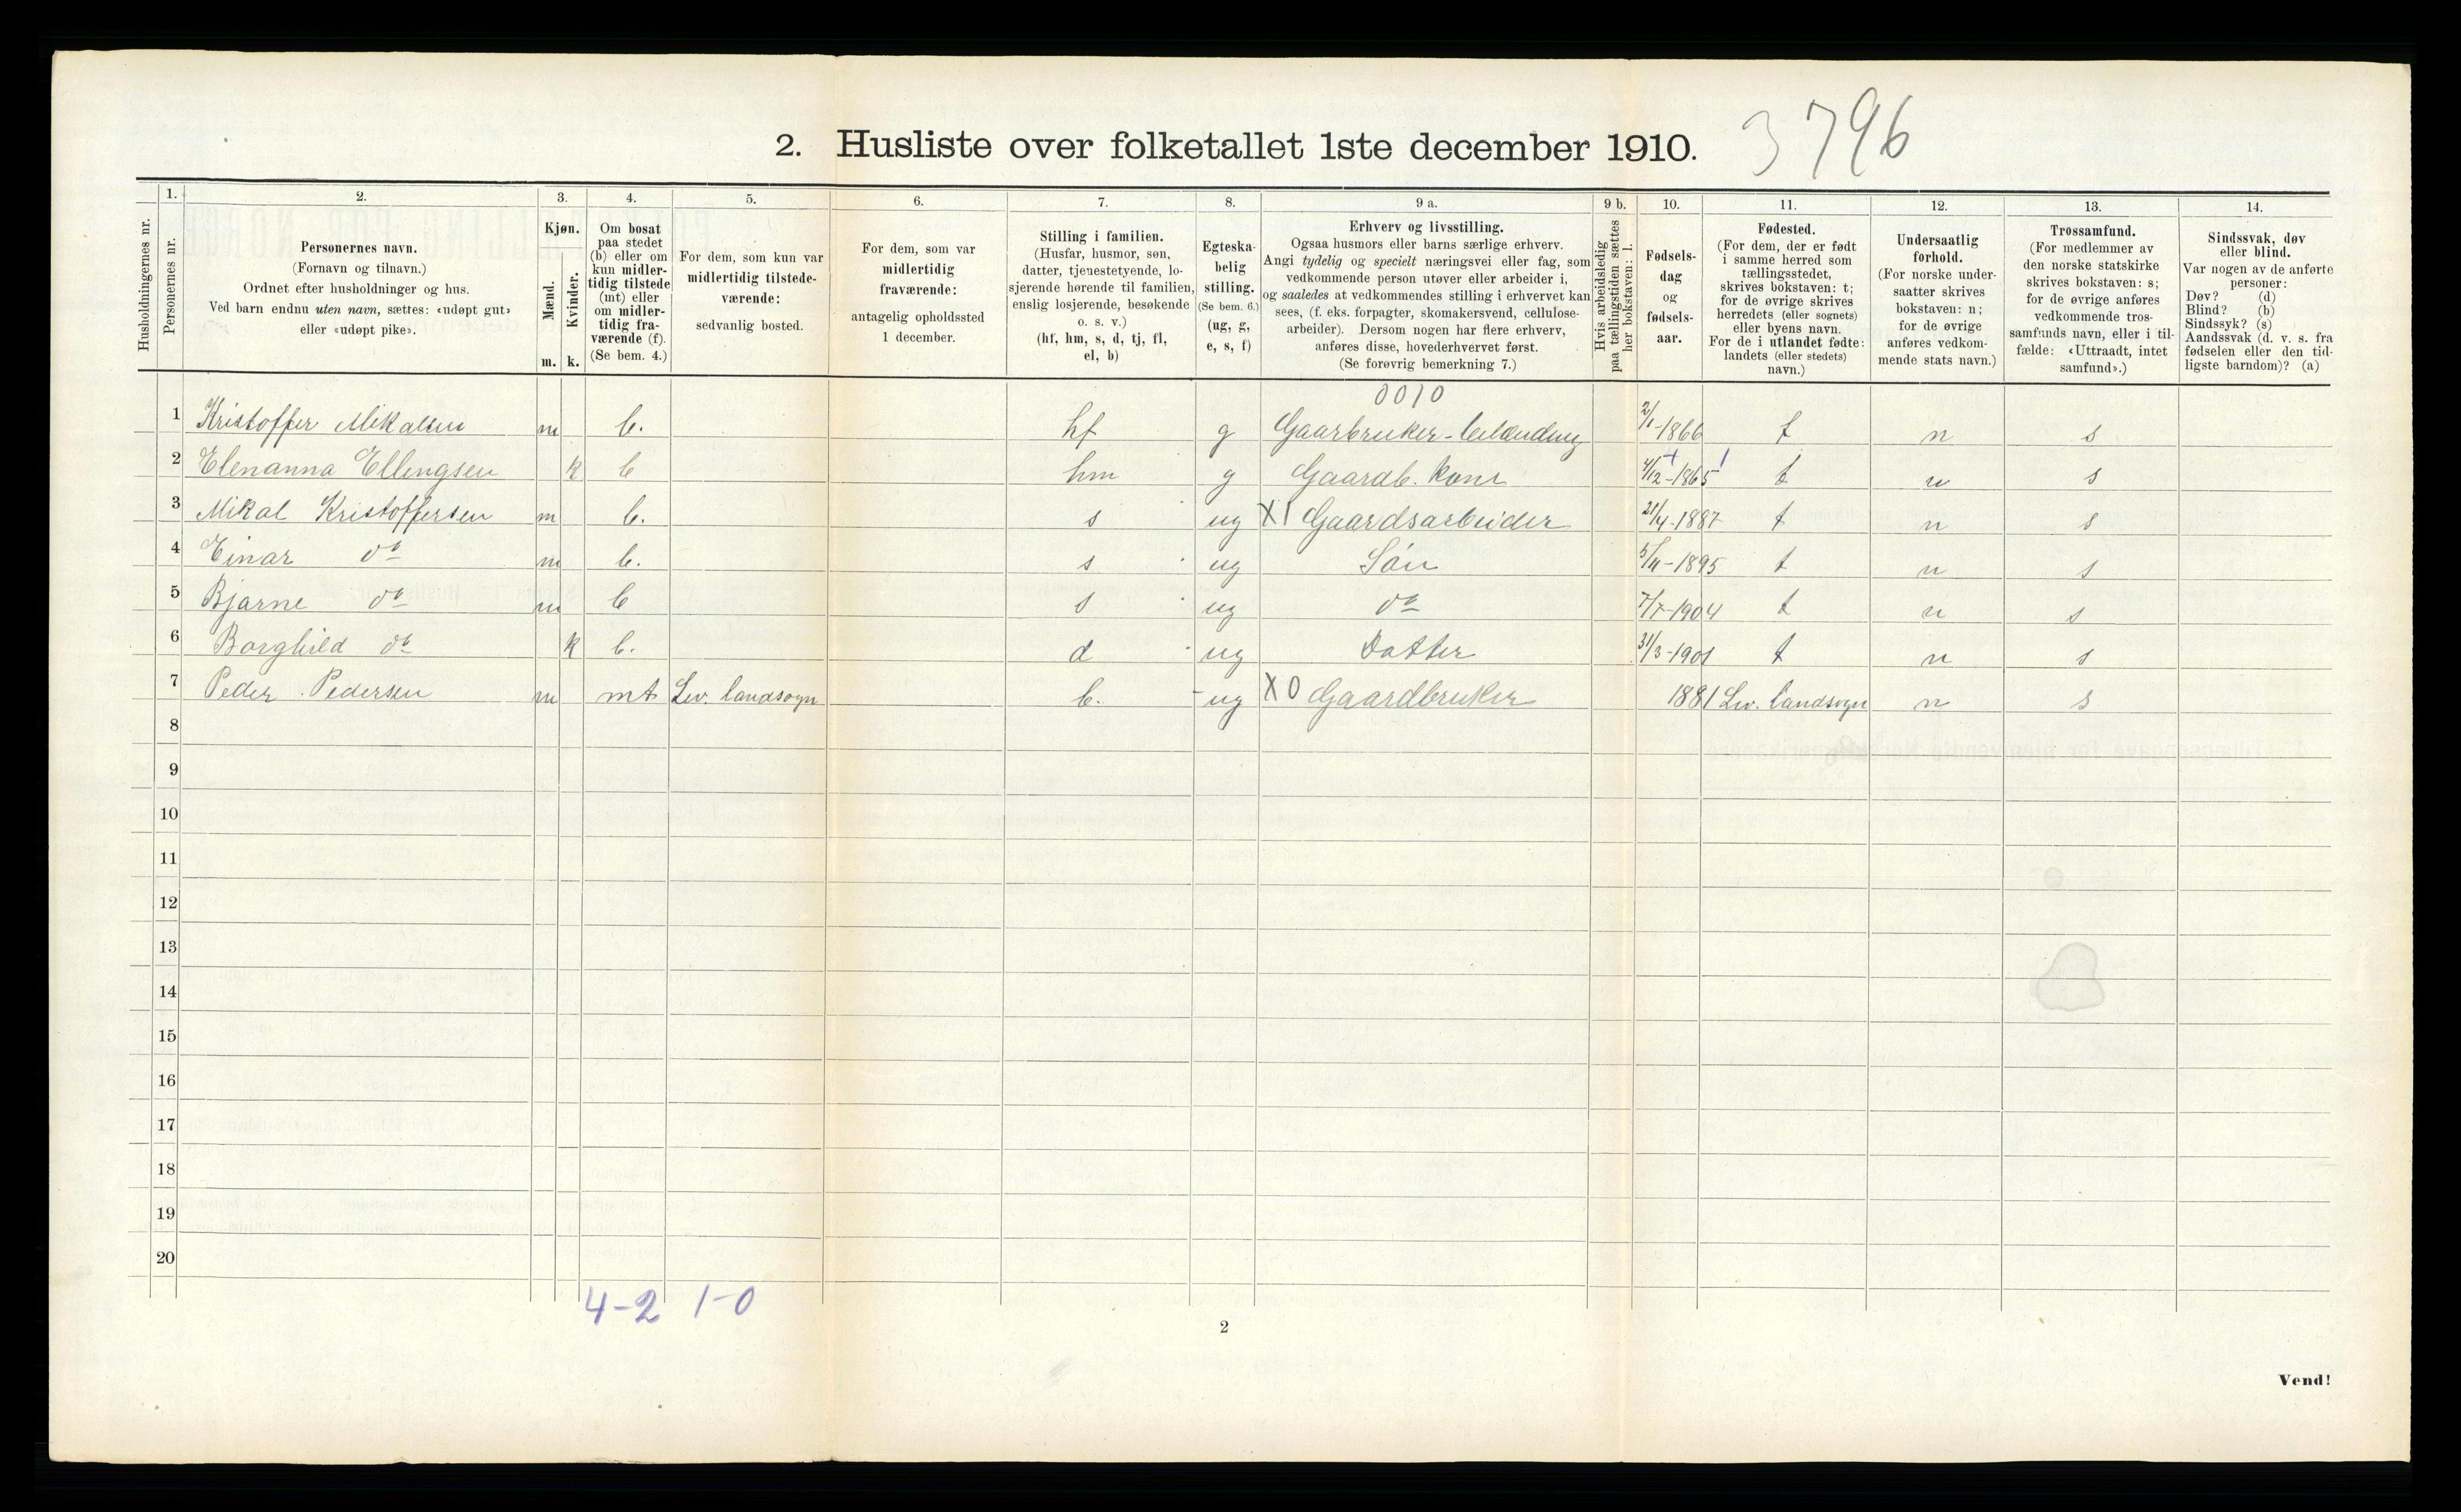 2. Husliste over folketallet 1ste december 1910. 3796
Husholdningernes nr.
1.
Personernes nr.
2.
Personernes navn.
(Fornavn og tilnavn.)
Ordnet efter husholdninger og hus.
Ved barn endnu uten navn, sættes: «udøpt gut»
eller «udøpt pike».
3.
Kjøn.
Mænd.
m.
Kvinder.
k.
4.
Om bosat
paa stedet
(b) eller om
kun midler-
tidig tilstede
(mt) eller
om midler-
tidig fra-
værende (f).
(Se bem. 4.)
5.
For dem, som kun var
midlertidig tilstede-
værende:
sedvanlig bosted.
6.
For dem, som var
midlertidig
fraværende:
antagelig opholdssted
1 december.
7.
Stilling i familien.
(Husfar, husmor, søn,
datter, tjenestetyende, lo-
sjerende hørende til familien,
enslig losjerende, besøkende
o. s. v.)
(hf, hm, s, d, tj, fl,
el, b)
8.
Egteska-
belig
stilling.
(Se bem. 6.)
(ug, g,
e, s, f)
9 a.
Erhverv og livsstilling.
Ogsaa husmors eller barns særlige erhverv.
Angi tydelig og specielt næringsvei eller fag, som
vedkommende person utøver eller arbeider i,
og saaledes at vedkommendes stilling i erhvervet kan
sees, (f. eks. forpagter, skomakersvend, cellulose-
arbeider). Dersom nogen har flere erhverv,
anføres disse, hovederhvervet først.
(Se forøvrig bemerkning 7.)
9 b.
Hvis arbeidsledig
paa tællingstiden sættes
her bokstaven: l.
10.
Fødsels-
dag
og
fødsels-
aar.
11.
Fødested.
(For dem, der er født
i samme herred som
tællingsstedet,
skrives bokstaven: t;
for de øvrige skrives
herredets (eller sognets)
eller byens navn.
For de i utlandet fødte:
landets (eller stedets)
navn.)
12.
Undersaatlig
forhold.
(For norske under-
saatter skrives
bokstaven: n;
for de øvrige
anføres vedkom-
mende stats navn.)
13.
Trossamfund.
(For medlemmer av
den norske statskirke
skrives bokstaven: s;
for de øvrige anføres
vedkommende tros-
samfunds navn, eller i til-
fælde: «Uttraadt, intet
samfund».)
14.
Sindssvak, døv
eller blind.
Var nogen av de anførte
personer:
Døv? (d)
Blind? (b)
Sindssyk? (s)
Aandssvak (d. v. s. fra
fødselen eller den tid-
ligste barndom)? (a)
0010
1 Kristoffer Mikalsen m b. hf g Gaarbruker - leilænding 2/1-1866 t n s
2 Elenanna Ellingsen k b hm g Gaardb. kone 4/12-1865 t n s
3 Mikal Kristoffersen m b. s ug X1 Gaardsarbeider 21/4-1887 t n s
4 Einar do m b. s ug Søn 5/11-1895 t n s
5 Bjarne do m b s ug do 7/7-1904 t n s
6 Borghild do k b. d ug Datter 31/3-1901 t n s
7 Peder Pedersen m mt Lev. landsogn b. ug X0 Gaardbruker 1881 Lev. landsogn n s
8
9
10
11
12
13
14
15
16
17
18
19
20
4-2 1-0
2
Vend!